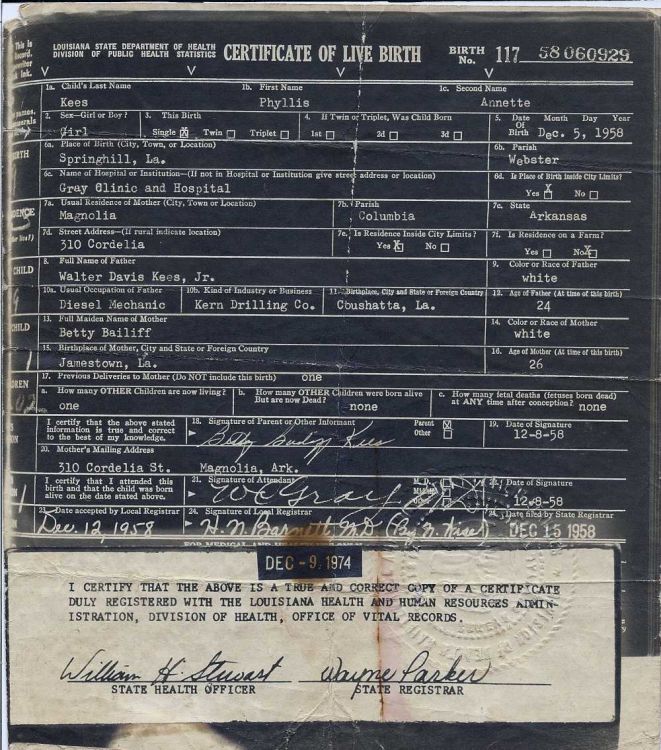 This is
LOUISIANA STATE DEPARTMENT OF HEALTH
DIVISION OF PUBLIC HEALTH STATISTICS
CERTIFICATE OF LIVE BIRTH
BIRTH No. 117 58 060929
1a. Child's Last Name 1b. First Name 1c. Second Name
Kees Phyllis Annette
2. Sex—Girl or Boy? 3. This Birth 4. If Twin or Triplet, Was Child Born 5. Date Of Birth Month Day Year
Girl Single X Twin Triplet 1st 2d 3d Dec. 5, 1958
6a. Place of Birth (City, Town, or Location) 6b. Parish
Springhill, La. Webster
6c. Name of Hospital or Institution—(If not in Hospital or Institution give street address or location) 6d. Is Place of Birth inside City Limits?
Gray Clinic and Hospital Yes X No
7a. Usual Residence of Mother (City, Town or Location) 7b. Parish 7c. State
Magnolia Columbia Arkansas
7d. Street Address—(If rural indicate location) 7e. Is Residence Inside City Limits? 7f. Is Residence on a Farm?
310 Cordelia Yes X No Yes No X
8. Full Name of Father 9. Color or Race of Father
Walter Davis Kees, Jr. white
10a. Usual Occupation of Father 10b. Kind of Industry or Business 11. Birthplace, City and State or Foreign Country 12. Age of Father (At time of this birth)
Diesel Mechanic Kern Drilling Co. Coushatta, La. 24
13. Full Maiden Name of Mother 14. Color or Race of Mother
Betty Bailiff white
15. Birthplace of Mother, City and State or Foreign Country 16. Age of Mother (At time of this birth)
Jamestown, La. 26
17. Previous Deliveries to Mother (Do NOT include this birth) one
a. How many OTHER Children are now living? b. How many OTHER Children were born alive But are now Dead? c. How many fetal deaths (fetuses born dead) at ANY time after conception? none
one none
I certify that the above stated information is true and correct to the best of my knowledge. 18. Signature of Parent or Other Informant Parent X Other 19. Date of Signature
Betty Kees 12-8-58
20. Mother's Mailing Address
310 Cordelia St. Magnolia, Ark.
I certify that I attended this birth and that the child was born alive on the date stated above. 21. Signature of Attendant M.D. Date of Signature
W C Gray 12-8-58
23. Date accepted by Local Registrar 24. Signature of Local Registrar Date filed by State Registrar
Dec. 12, 1958 H. N. Barnett M.D. DEC 15 1958
DEC - 9. 1974
I CERTIFY THAT THE ABOVE IS A TRUE AND CORRECT COPY OF A CERTIFICATE
DULY REGISTERED WITH THE LOUISIANA HEALTH AND HUMAN RESOURCES ADMIN-
ISTRATION, DIVISION OF HEALTH, OFFICE OF VITAL RECORDS.
William H. Stewart Wayne Parker
STATE HEALTH OFFICER STATE REGISTRAR